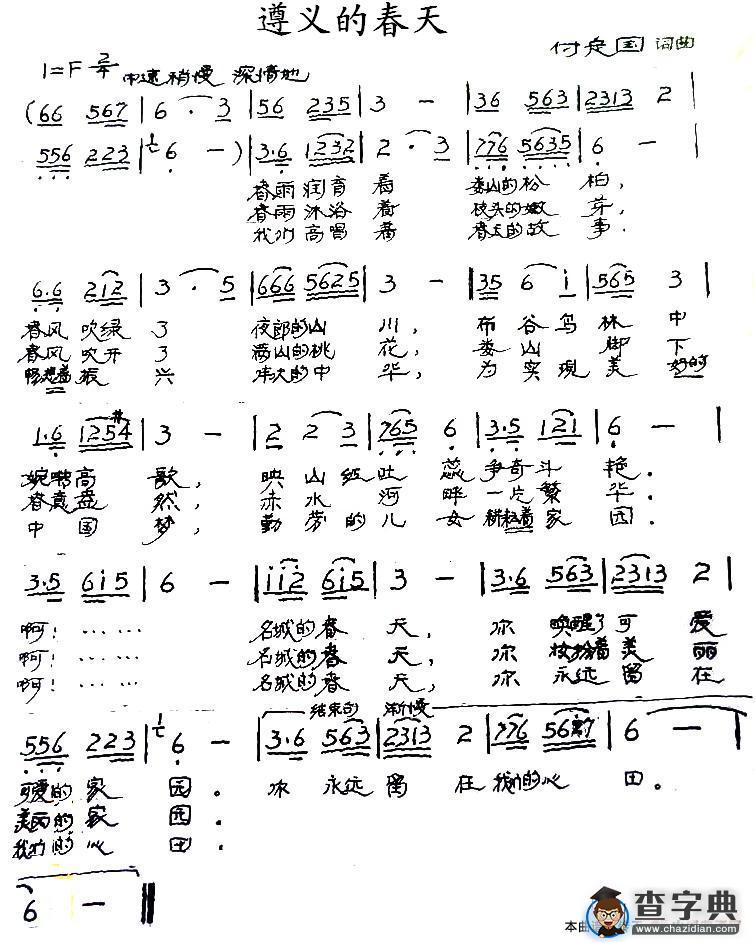 遵义的春天
付定国 词曲
1=F 2/4 中速稍慢 深情地
(66 567 | 6 · 3 | 56 235 | 3 – | 36 563 | 2313 2 |
556 223 | 6 – ) | 3·6 1232 | 2 · 3 | 776 5635 | 6 – |
春雨润育着 娄山的松柏,
春雨沐浴着 枝头的嫩芽,
我们高唱着 春天的故事.
6·6 212 | 3 · 5 | 666 5625 | 3 – | 35 6 i | 565 3 |
春风吹绿了 夜郎的山川, 布谷鸟林中
春风吹开了 满山的桃花, 娄山脚下
畅想着振兴 伟大的中华, 为实现美好的
1·6 1254 | 3 – | 2 2 3 | 765 6 | 3·5 121 | 6 – |
婉转高歌, 映山红吐蕊争奇斗艳.
春意盎然, 赤水河畔一片繁华.
中国梦, 勤劳的儿女耕耘着家园.
3·5 6i5 | 6 – | iii2 6i5 | 3 – | 3·6 563 | 2313 2 |
啊! …… …… 名城的春天, 你唤醒了可爱
啊! …… …… 名城的春天, 你妆扮着美丽
啊! …… …… 名城的春天, 你永远留在
结束句 渐慢
556 223 | 6 – | 3·6 563 | 2313 2 | 776 5667 | 6 – |
可爱的家园. 你永远留在我们的心田.
美丽的家园.
我们的心田.
6 – ‖
本曲谱
查字典
www.chazidian.com